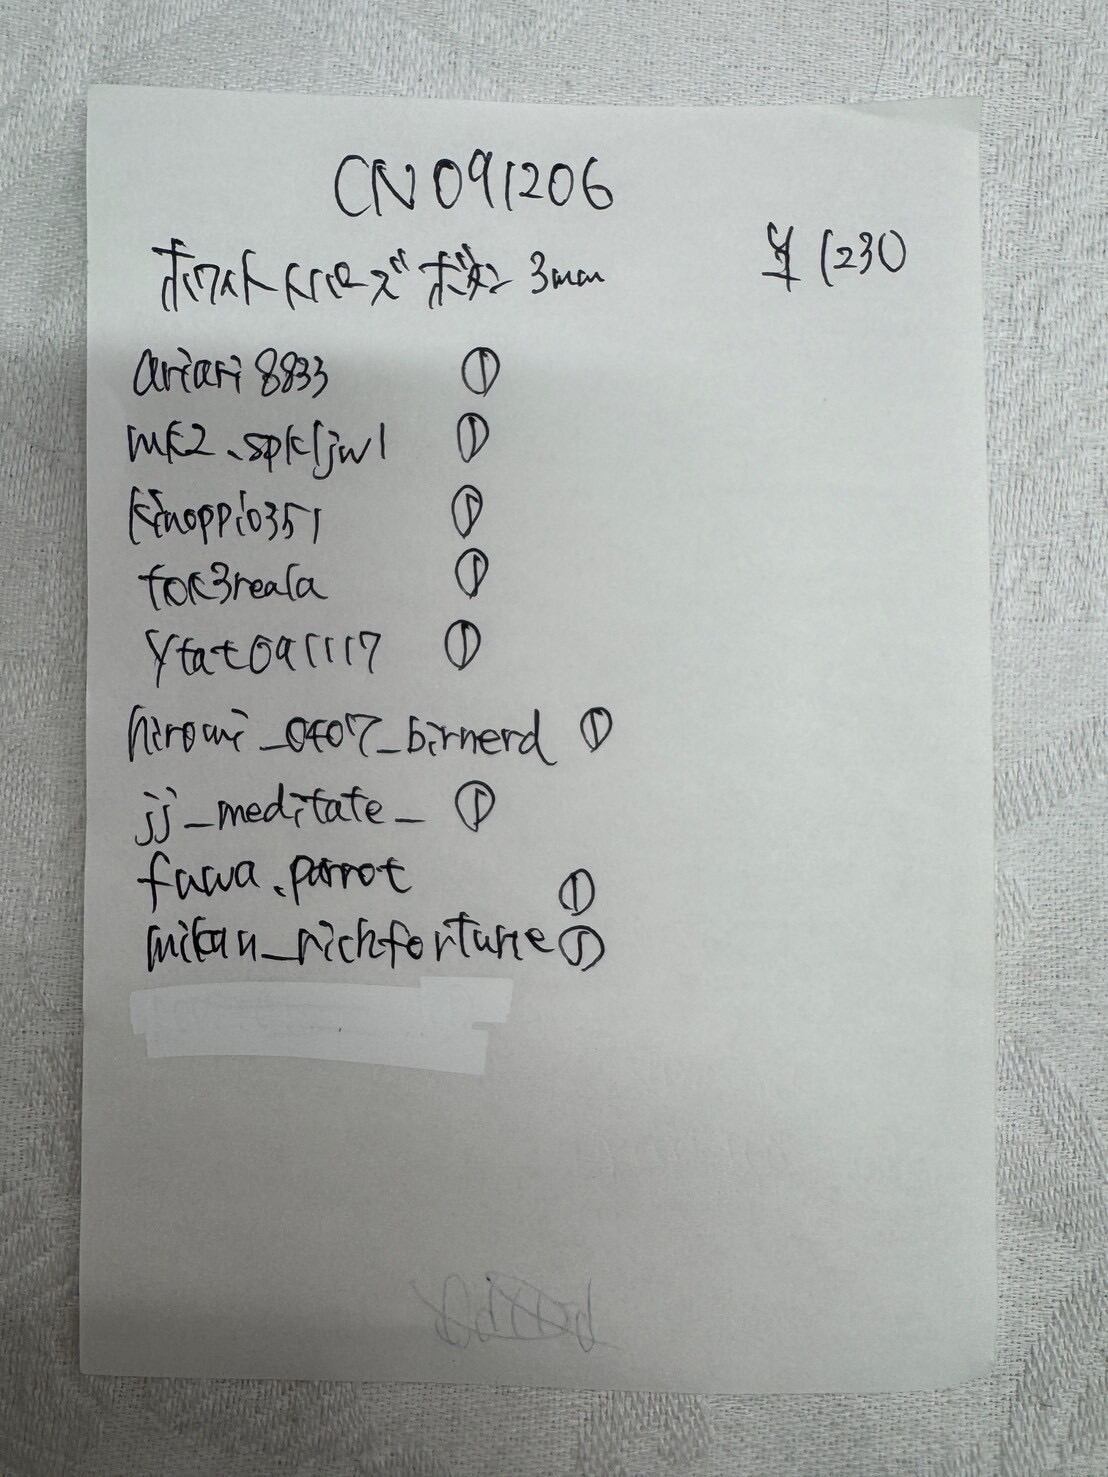 CN091206
ホワイトトパーズ ボタン 3mm ¥1230
ariari8833 ①
mk2.spkljwl ①
kinoppio351 ①
tok3reala ①
ytat091117 ①
hiromi_0407_birnerd ①
jj_meditate_ ①
fuwa.parrot ①
mikan_richfortune ①